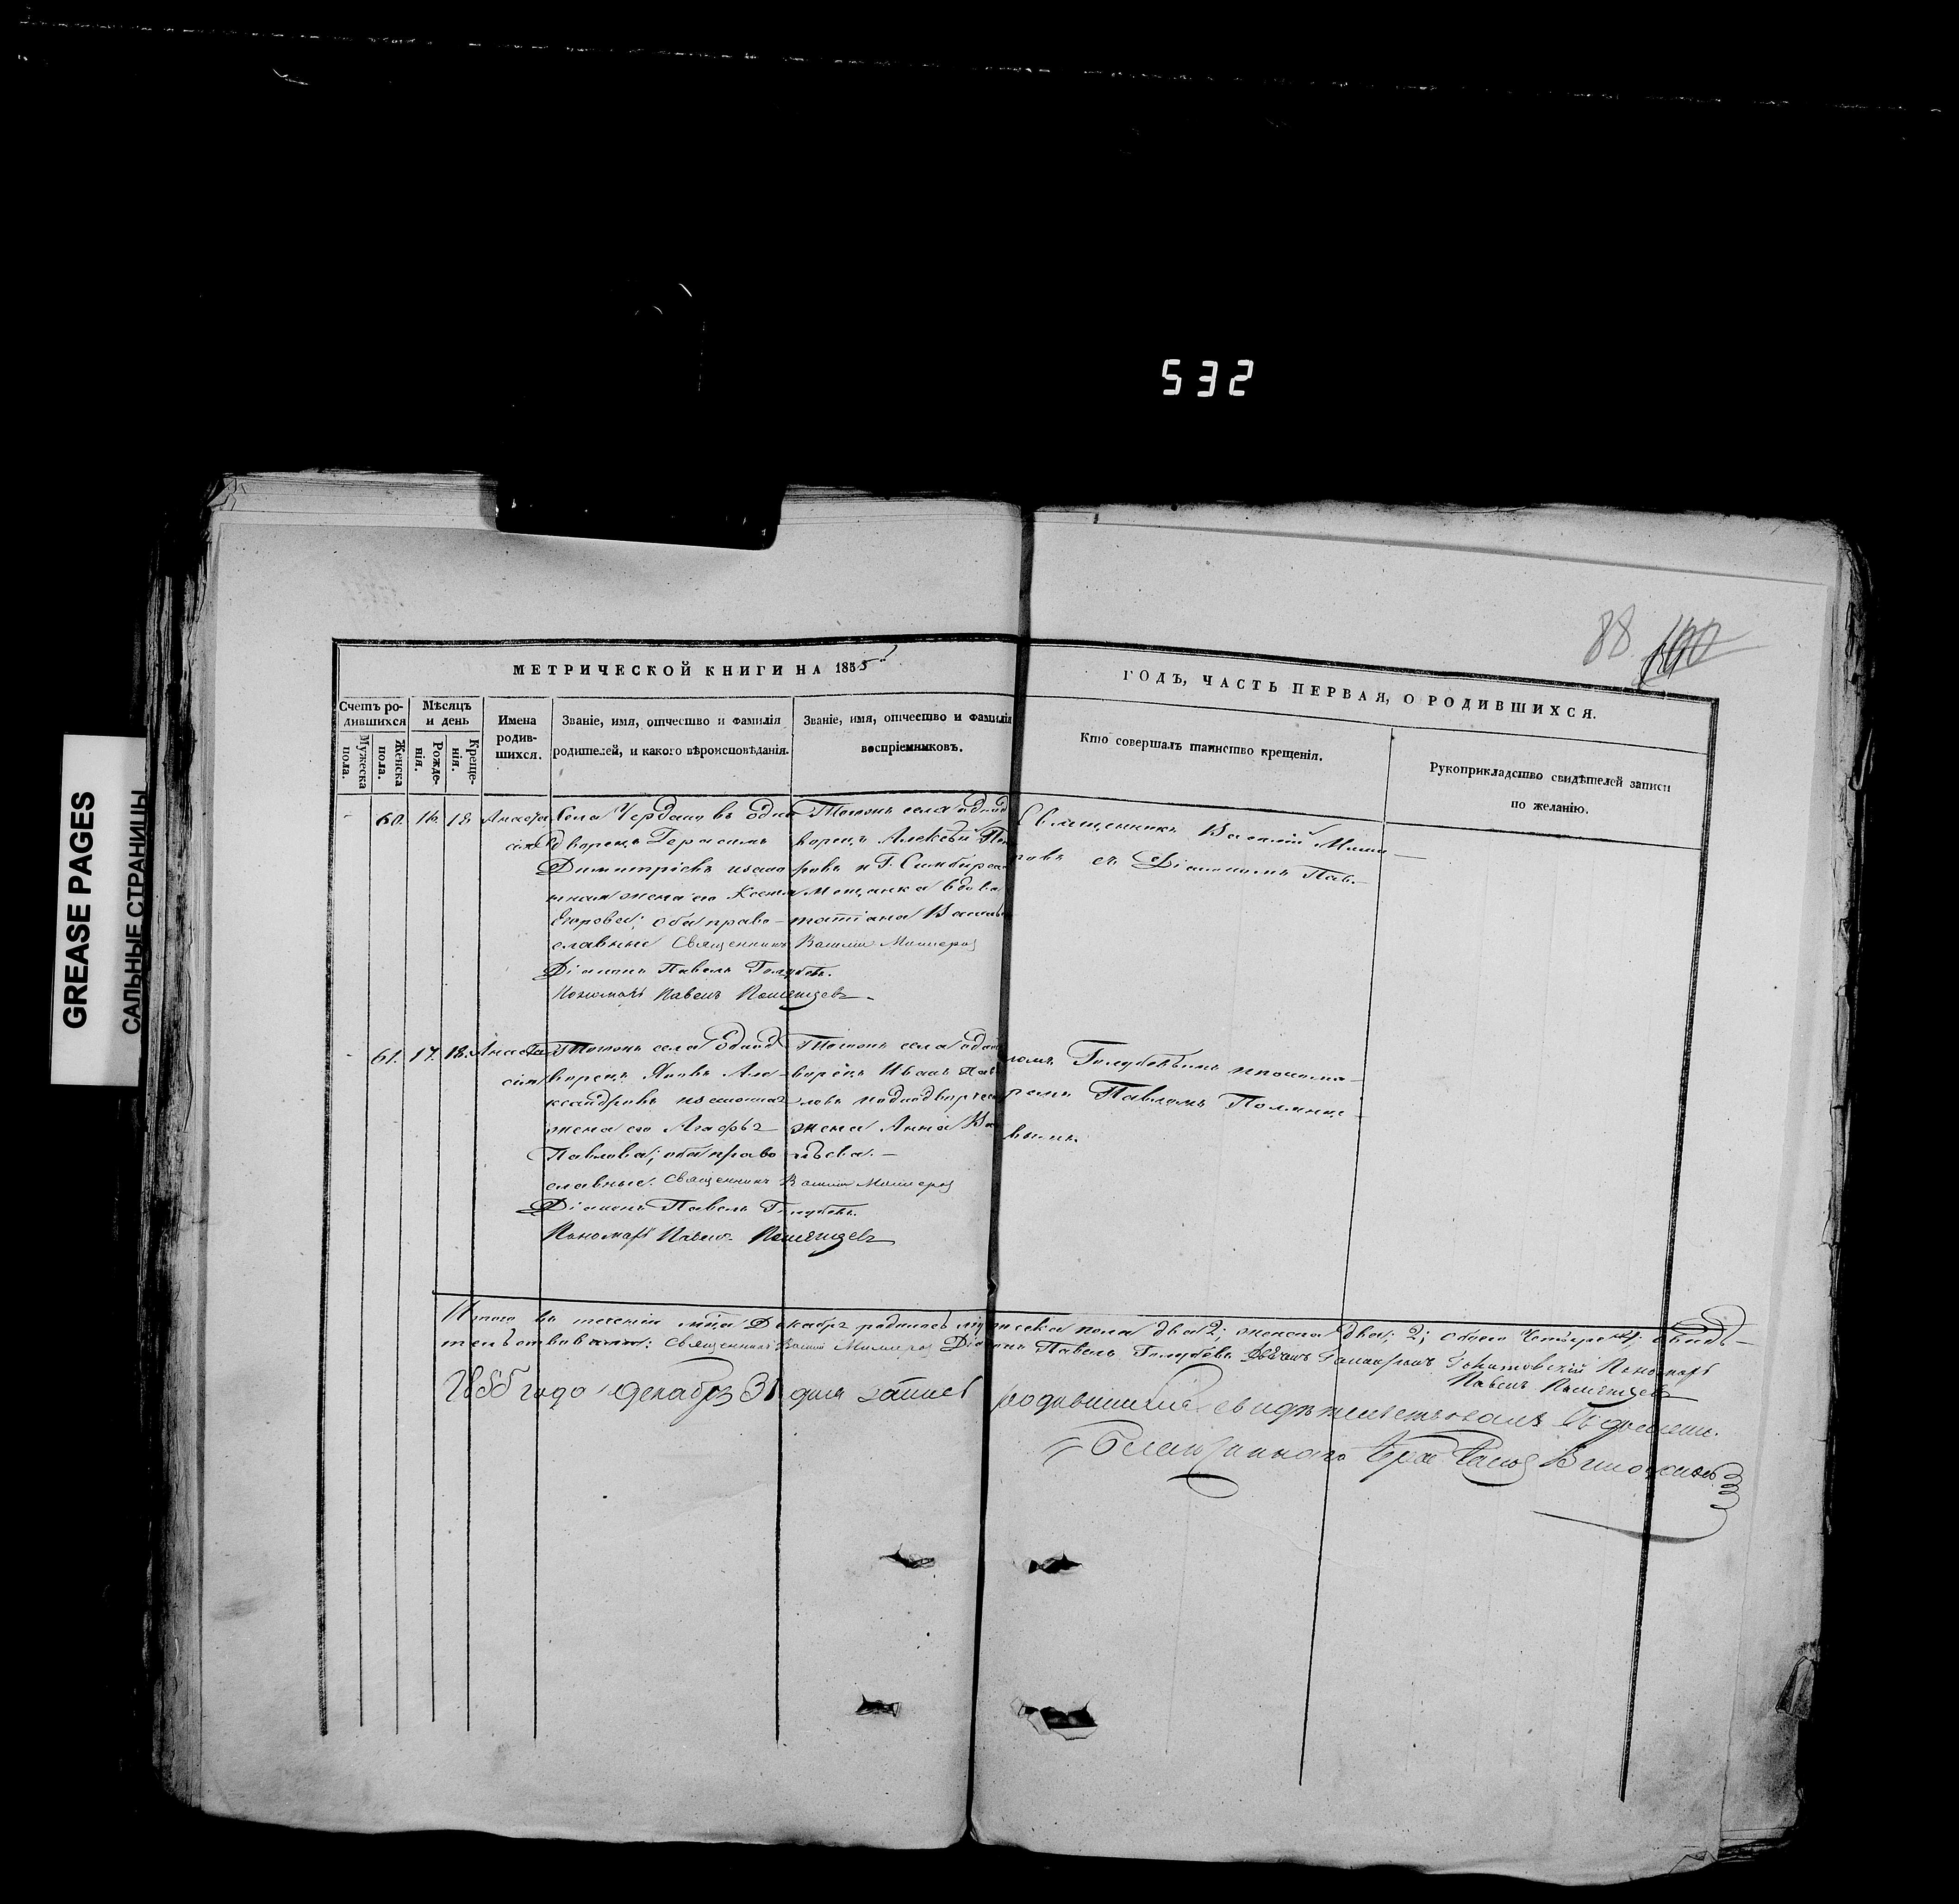 532
GREASE PAGES
САЛЬНЫЕ СТРАНИЦЫ
88 100
МЕТРИЧЕСКОЙ КНИГИ НА 1855
ГОДЪ, ЧАСТЬ ПЕРВАЯ, О РОДИВШИХСЯ.
Счетъ родившихся
Мужеска пола.
Женска пола.
Мѣсяцъ и день
Рожденія.
Крещенія.
Имена родившихся.
Званіе, имя, отчество и фамилія
родителей, и какого вѣроисповѣданія.
Званіе, имя, отчество и фамилія
воспріемниковъ.
Кто совершалъ таинство крещенія.
Рукоприкладство свидѣтелей записи
по желанію.
- 60. 16. 18. Анаста
сія
Села Чердако въ одно
дворецъ Герасимъ
Димитріевъ изако
ная жена его Ксенія
Егорова; оба право-
славные Священникъ Василій
Діаконъ Павелъ Голубевъ.
Пономарь Павелъ
Тогожъ села однод
ворецъ Алексѣй
ровъ и Г. Симбирска
Мещанка вдова
татіана Василь
Священникъ Василій
ровъ съ Діакономъ Пав-
- 61. 17. 18. Анаста
сія
Тогожъ села Однод
ворецъ Яковъ Але-
ксандровъ изаконная
жена его Агафья
Павлова; оба право
славные. Священникъ Василій
Діаконъ Павелъ Голубевъ.
Пономарь Павелъ
Тогожъ села однод
ворецъ Иванъ Пав
ловъ иоднодворческая
жена Анна Ва
льева. -
ломъ Голубевымъ ипонома-
ремъ Павломъ
вымъ.
Итого въ теченіи мца Декабря родилось мужеска пола два 2; женска два; 2; обоего Четыре 4; свидѣ-
тельствовали: Священникъ Василій Діаконъ Павелъ Голубевъ Пономарь
Павелъ
1855 года Декабря 31 дня запись родившихся свидѣтельствовалъ